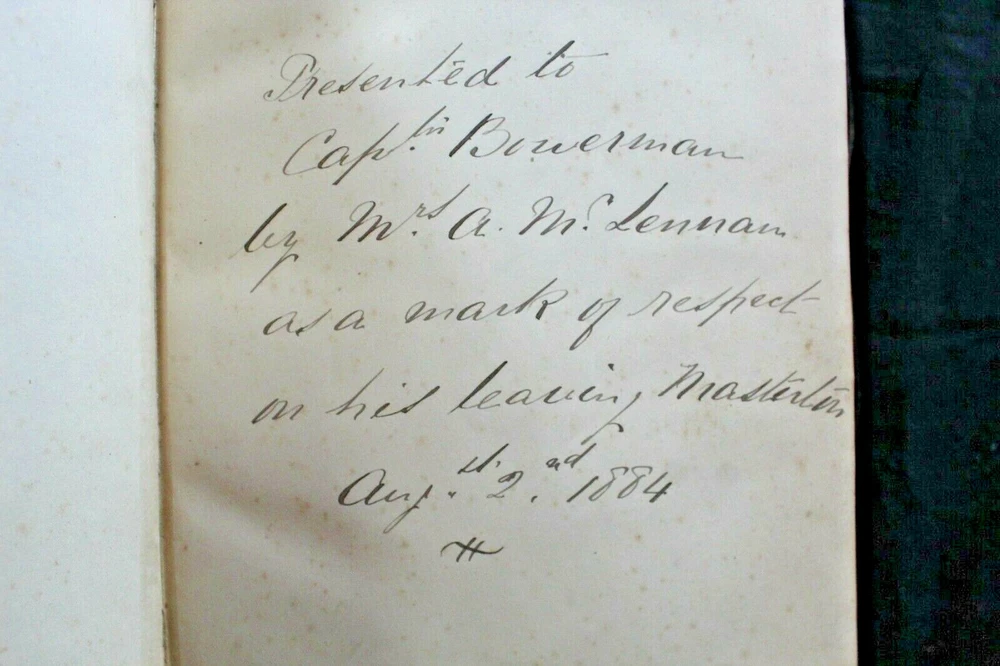 Presented to
Capt.in Bowerman
by Mrs. A. Mc.Lennan
as a mark of respect
on his leaving Masterton
Aug.st. 2.nd 1884